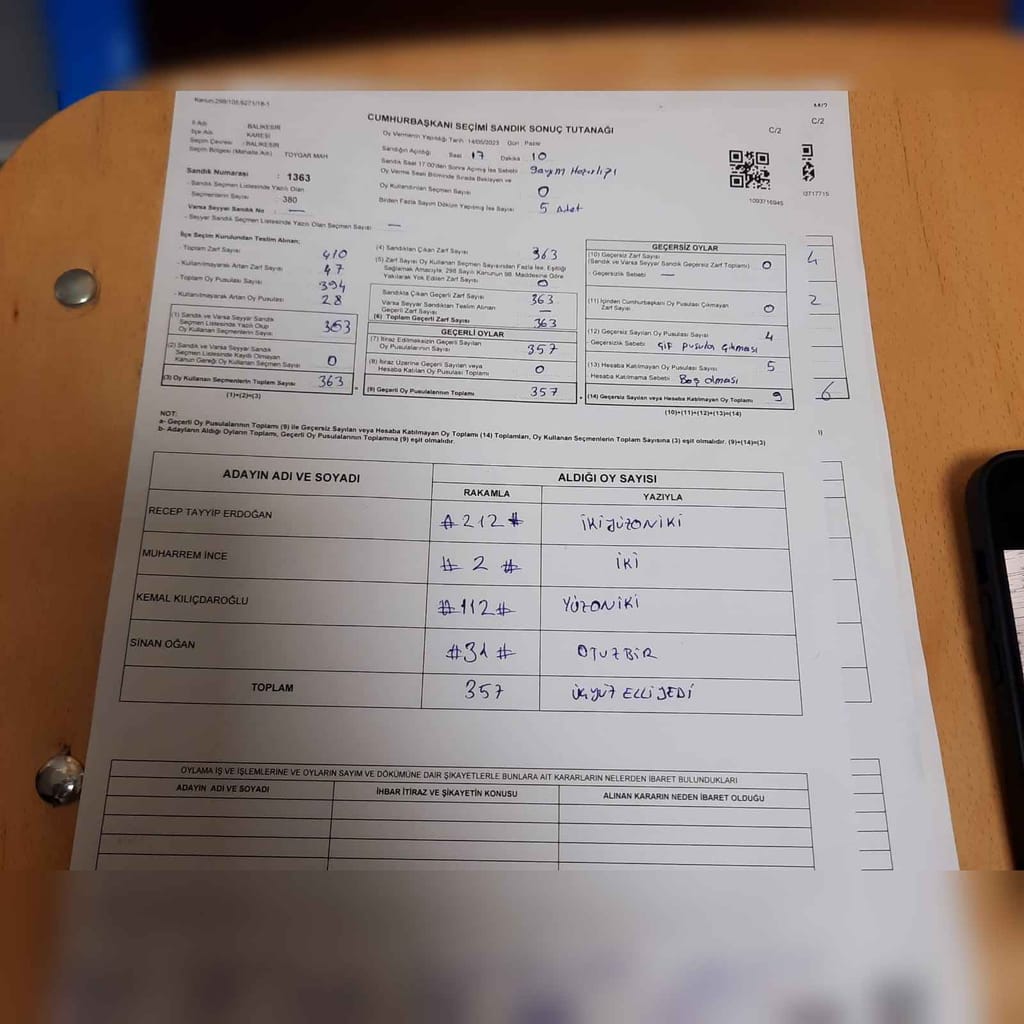 Kanun:298/105,6271/18-1
CUMHURBAŞKANI SEÇİMİ SANDIK SONUÇ TUTANAĞI
C/2
C/2
İl Adı : BALIKESİR
İlçe Adı : KARESİ
Seçim Çevresi : BALIKESİR
Seçim Bölgesi (Mahalle Adı) : TOYGAR MAH
Oy Vermenin Yapıldığı Tarih : 14/05/2023 Gün : Pazar
Sandığın Açıldığı Saat 17 Dakika 10
Sandık Saat 17.00'den Sonra Açılmış İse Sebebi Sayım Hazırlığı
Oy Verme Saati Bitiminde Sırada Bekleyen ve
Oy Kullandırılan Seçmen Sayısı 0
Birden Fazla Sayım Döküm Yapılmış İse Sayısı 5 Adet
1093716945
Sandık Numarası : 1363
- Sandık Seçmen Listesinde Yazılı Olan
Seçmenlerin Sayısı : 380
Varsa Seyyar Sandık No : —
- Seyyar Sandık Seçmen Listesinde Yazılı Olan Seçmen Sayısı : —
İlçe Seçim Kurulundan Teslim Alınan;
- Toplam Zarf Sayısı 410
- Kullanılmayarak Artan Zarf Sayısı 47
- Toplam Oy Pusulası Sayısı 394
- Kullanılmayarak Artan Oy Pusulası 28
(1) Sandık ve Varsa Seyyar Sandık
Seçmen Listesinde Yazılı Olup
Oy Kullanan Seçmenlerin Sayısı 363
(2) Sandık ve Varsa Seyyar Sandık
Seçmen Listesinde Kayıtlı Olmayan
Kanun Gereği Oy Kullanan Seçmen Sayısı 0
(3) Oy Kullanan Seçmenlerin Toplam Sayısı 363
(1)+(2)=(3)
(4) Sandıktan Çıkan Zarf Sayısı 363
(5) Zarf Sayısı Oy Kullanan Seçmen Sayısından Fazla İse, Eşitliği
Sağlamak Amacıyla, 298 Sayılı Kanunun 98. Maddesine Göre
Yakılarak Yok Edilen Zarf Sayısı 0
Sandıkta Çıkan Geçerli Zarf Sayısı 363
Varsa Seyyar Sandıktan Teslim Alınan
Geçerli Zarf Sayısı —
(6) Toplam Geçerli Zarf Sayısı 363
GEÇERLİ OYLAR
(7) İtiraz Edilmeksizin Geçerli Sayılan
Oy Pusulalarının Sayısı 357
(8) İtiraz Üzerine Geçerli Sayılan veya
Hesaba Katılan Oy Pusulası Toplamı 0
(9) Geçerli Oy Pusulalarının Toplamı 357
GEÇERSİZ OYLAR
(10) Geçersiz Zarf Sayısı
(Sandık ve Varsa Seyyar Sandık Geçersiz Zarf Toplamı) 0
- Geçersizlik Sebebi —
(11) İçinden Cumhurbaşkanı Oy Pusulası Çıkmayan
Zarf Sayısı 0
(12) Geçersiz Sayılan Oy Pusulası Sayısı 4
- Geçersizlik Sebebi Çift pusula çıkması
(13) Hesaba Katılmayan Oy Pusulası Sayısı 5
- Hesaba Katılmama Sebebi Boş olması
(14) Geçersiz Sayılan veya Hesaba Katılmayan Oy Toplamı 9
(10)+(11)+(12)+(13)=(14)
4
2
6
NOT:
a- Geçerli Oy Pusulalarının Toplamı (9) ile Geçersiz Sayılan veya Hesaba Katılmayan Oy Toplamı (14) Toplamları, Oy Kullanan Seçmenlerin Toplam Sayısına (3) eşit olmalıdır. (9)+(14)=(3)
b- Adayların Aldığı Oyların Toplamı, Geçerli Oy Pusulalarının Toplamına (9) eşit olmalıdır.
ADAYIN ADI VE SOYADI ALDIĞI OY SAYISI
RAKAMLA YAZIYLA
RECEP TAYYİP ERDOĞAN #212# İKİYÜZONİKİ
MUHARREM İNCE # 2 # İKİ
KEMAL KILIÇDAROĞLU #112# YÜZONİKİ
SİNAN OĞAN #31# OTUZBİR
TOPLAM 357 ÜÇYÜZ ELLİYEDİ
OYLAMA İŞ VE İŞLEMLERİNE VE OYLARIN SAYIM VE DÖKÜMÜNE DAİR ŞİKAYETLERLE BUNLARA AİT KARARLARIN NELERDEN İBARET BULUNDUKLARI
ADAYIN ADI VE SOYADI İHBAR İTİRAZ VE ŞİKAYETİN KONUSU ALINAN KARARIN NEDEN İBARET OLDUĞU